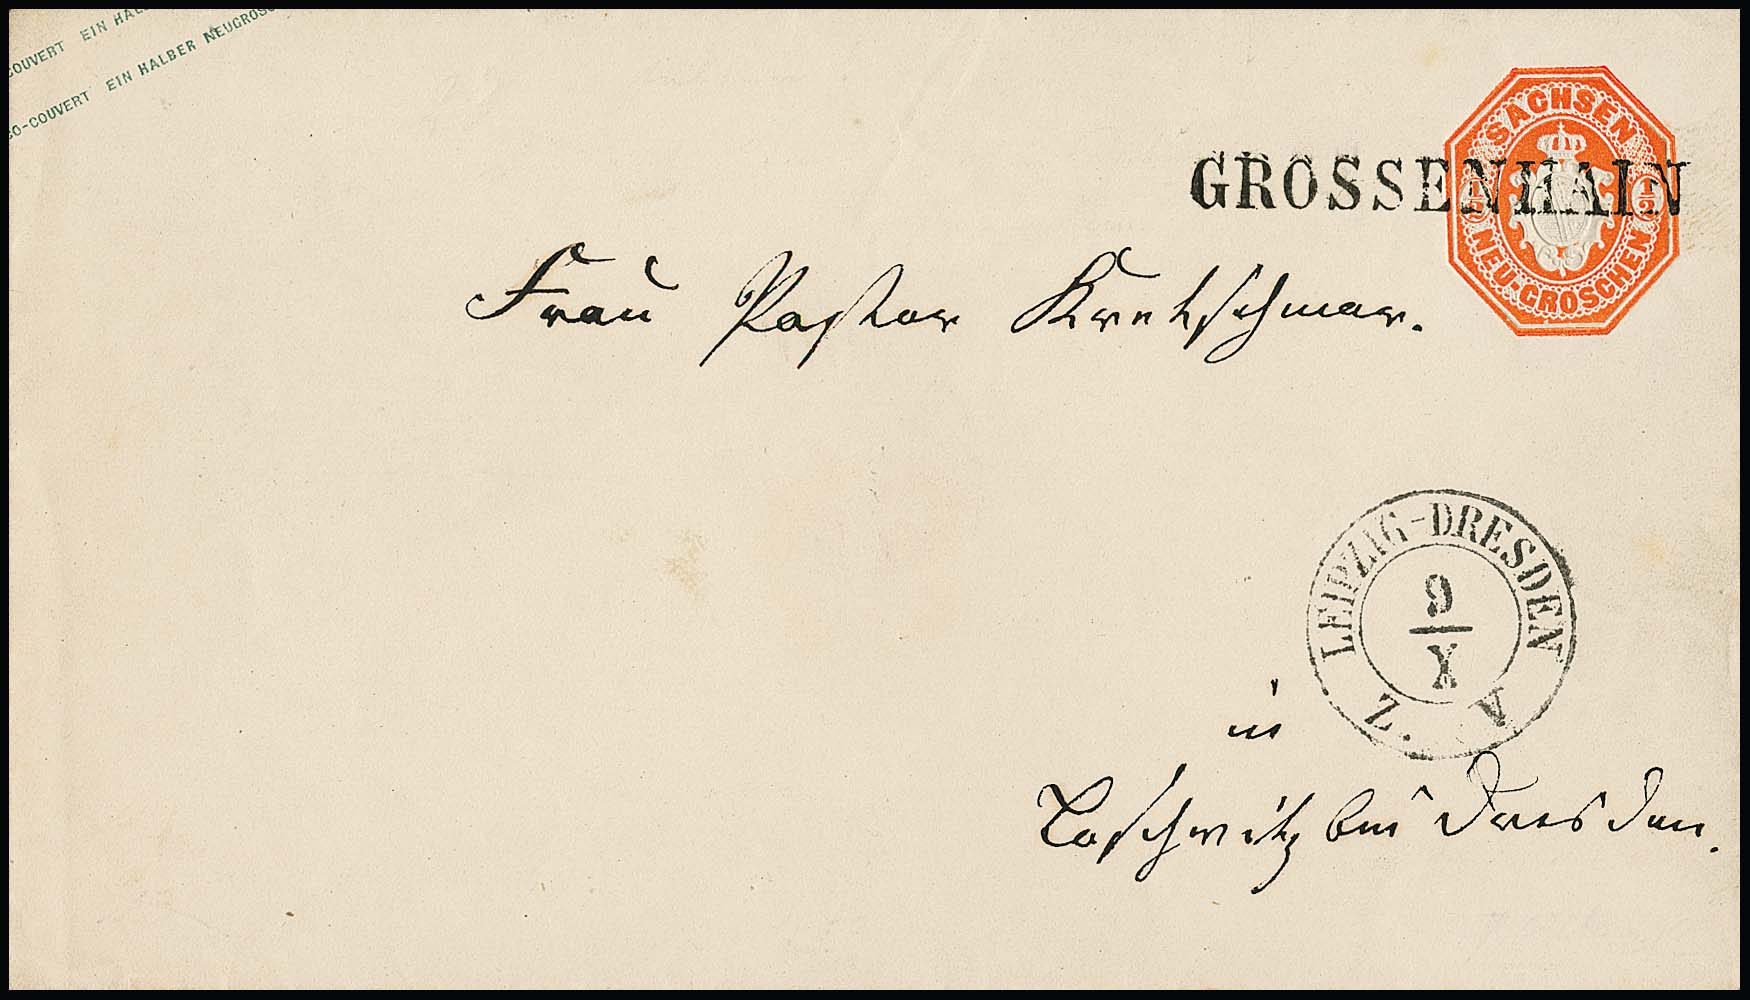 COUVERT EIN HAL
CO-COUVERT EIN HALBER NEUGROSC
SACHSEN
1/2 1/2
NEU-GROSCHEN
GROSSENHAIN
Frau Pastor Kretschmar.
LEIPZIG-DRESDEN
9
X
Z. A
in
Loschwitz bei Dresden.